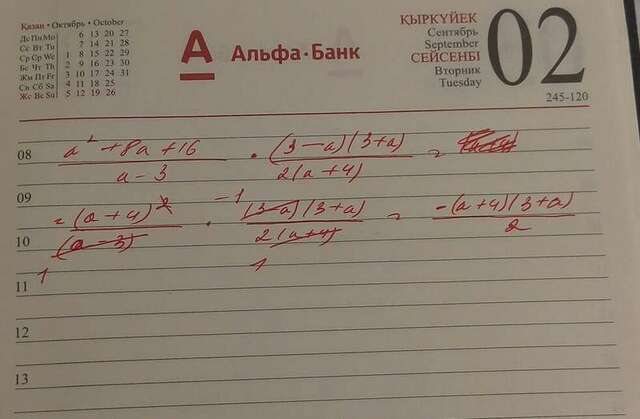 Қазан • Октябрь • October
Дс Пн Mo 6 13 20 27
Сс Вт Tu 7 14 21 28
Ср Ср We 1 8 15 22 29
Бс Чт Th 2 9 16 23 30
Жм Пт Fr 3 10 17 24 31
Сн Сб Sa 4 11 18 25
Жс Вс Su 5 12 19 26
А Альфа·Банк
ҚЫРКҮЙЕК
Сентябрь
September
СЕЙСЕНБІ
Вторник
Tuesday
02
245-120
08 (a² + 8a + 16)/(a - 3) · ((3 - a)(3 + a))/(2(a + 4)) =
09
= (a + 4)²/(a - 3) · ((3 - a)(3 + a))/(2(a + 4)) = (-(a + 4)(3 + a))/2
-1
10
1 1
11
12
13